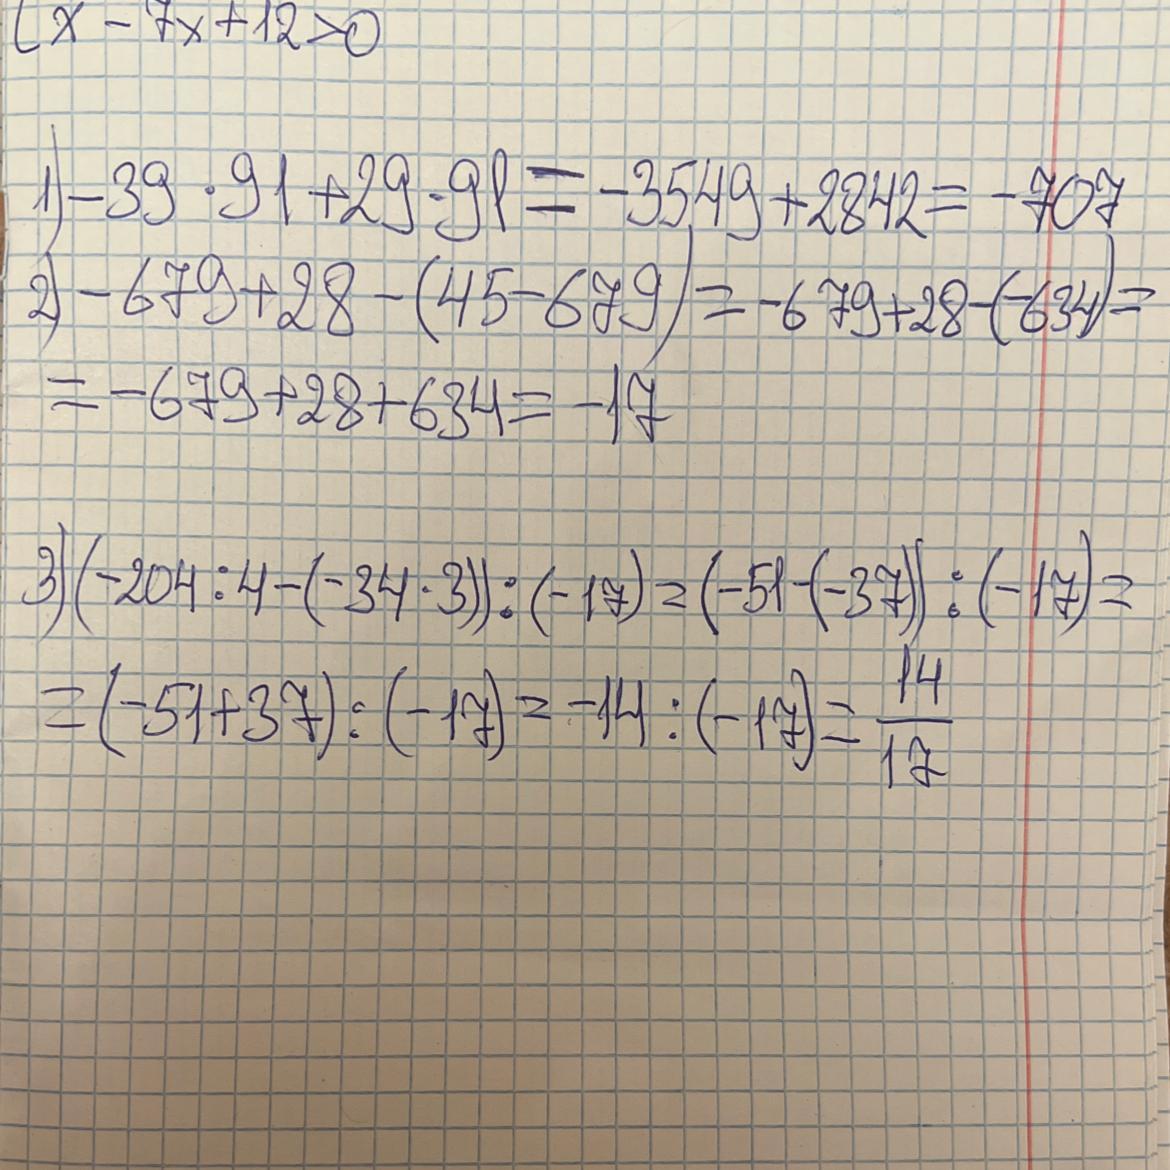 x - 7x + 12 > 0
1) -39 · 91 + 29 · 98 = -3549 + 2842 = -707
2) -679 + 28 - (45 - 679) = -679 + 28 - (-634) =
= -679 + 28 + 634 = -17
3) (-204 : 4 - (-34 · 3)) : (-17) = (-51 - (-37)) : (-17) =
= (-51 + 37) : (-17) = -14 : (-17) = 14/17